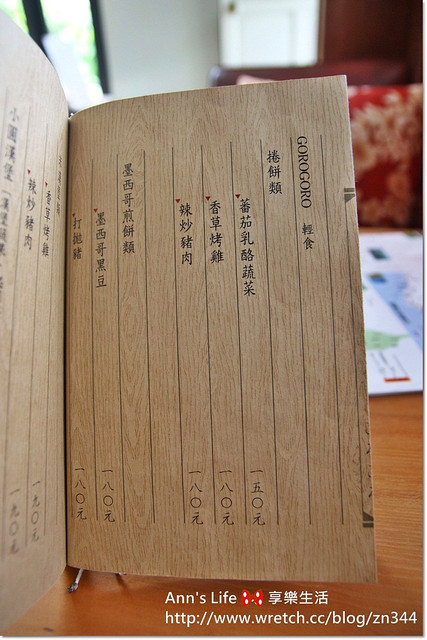 GOROGORO 輕食
捲餅類
蕃茄乳酪蔬菜 一五〇元
香草烤雞 一八〇元
辣炒豬肉 一八〇元
墨西哥煎餅類
墨西哥黑豆 一八〇元
打拋豬 一八〇元
香草烤雞 一九〇元
辣炒豬肉 一九〇元
小圓漢堡
Ann's Life 享樂生活
http://www.wretch.cc/blog/zn344